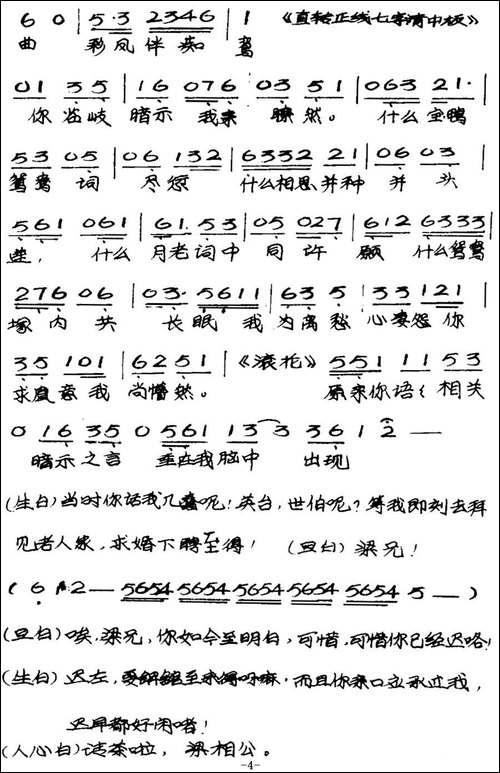 6 0 | 5·3 2346 | 1 《直转正线七字清中板》
曲 彩凤伴痴 鸾
01 35 | 16 076 | 03 51 | 063 21· |
你临歧 暗示 我未 瞭然。 什么宝鸭
53 05 | 06 132 | 6332 21 | 06 03 |
鸳鸯 词 尽 什么相思并种 并 头
561 061 | 61·53 | 05 027 | 612 6333 |
莲, 什么 月老词中 同许 愿 什么鸳鸯
276 06 | 03· 5611 | 63 5 | 33 121 |
塚内共 长眠 我为离愁 心 怨你
35 101 | 6251 | 《滚花》 551 11 53
求 意我 尚懵然。 原来你语〈 相关
0 16 35 0 561 13 3 361 2 —
暗示之言 在我脑中 出现
(生白) 当时你话我几 呢! 英台, 世伯呢? 等我即刻去拜
见老人家, 求婚下聘至得! (旦白) 梁兄!
( 6 2 — 5654 5654 5654 5654 5654 5 — )
(旦白) 唉, 梁兄, 你如今至明白, 可惜, 可惜你已经迟咯!
(生白) 迟左, 而且你亲口应承过我,
迟早都好闲啫!
(人心白) 请茶啦, 梁相公。
-4-